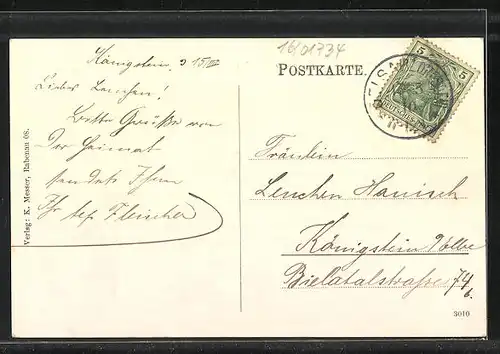 1601734
POSTKARTE.
5 5
DEUTSCHES REICH
Königstein,
Liebes Lenchen!
Beste Grüße von
Der Heimat
sendet Ihnen
Ihr Fleischer
Verlag: K. Messer, Rabenau 08.
Fräulein
Lenchen Hanisch
Königstein Elbe
Bielatalstrasse 74
b.
3010